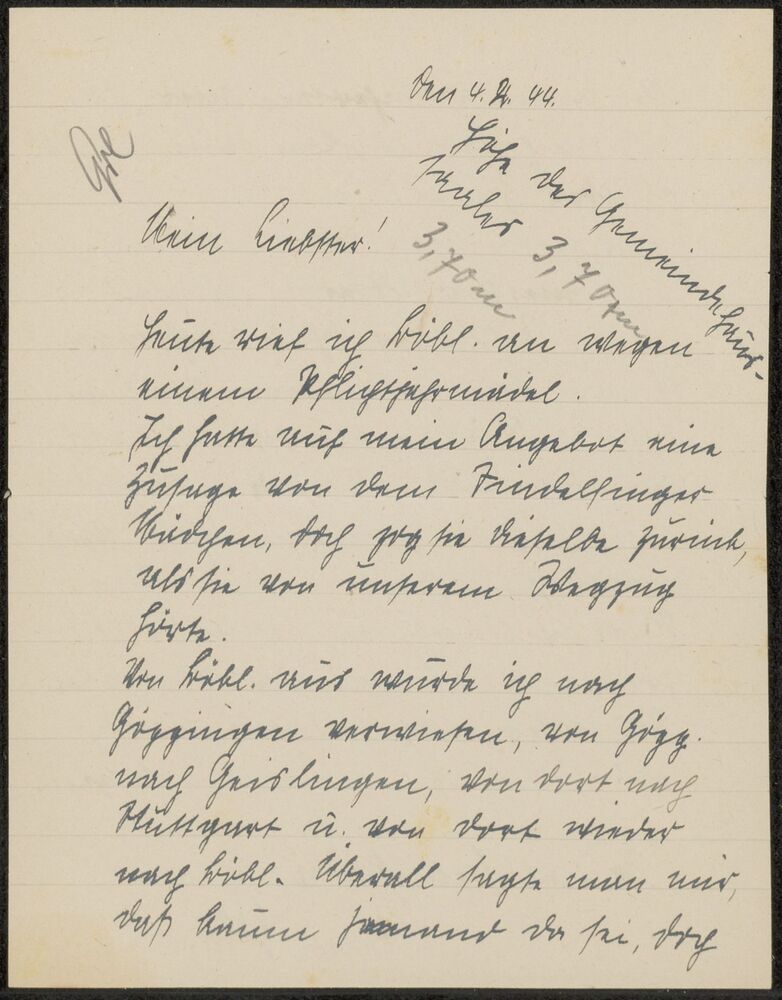 Den 4. 2. 44.
Höhe des Gemeindehaus-
saales 3,70 m
3,70 m
Mein Liebster!
Heute rief ich Böbl. an wegen
einem Pflichtjahrmädel.
Ich hatte auf mein Angebot eine
Zusage von dem Sindelfinger
Mädchen, doch zog sie dieselbe zurück,
als sie von unserem Wegzug
hörte.
Von Böbl. aus wurde ich nach
Göppingen verwiesen, von Göpp.
nach Geislingen, von dort nach
Stuttgart u. von dort wieder
nach Böbl. Überall sagte man mir,
daß kaum jemand da sei, doch